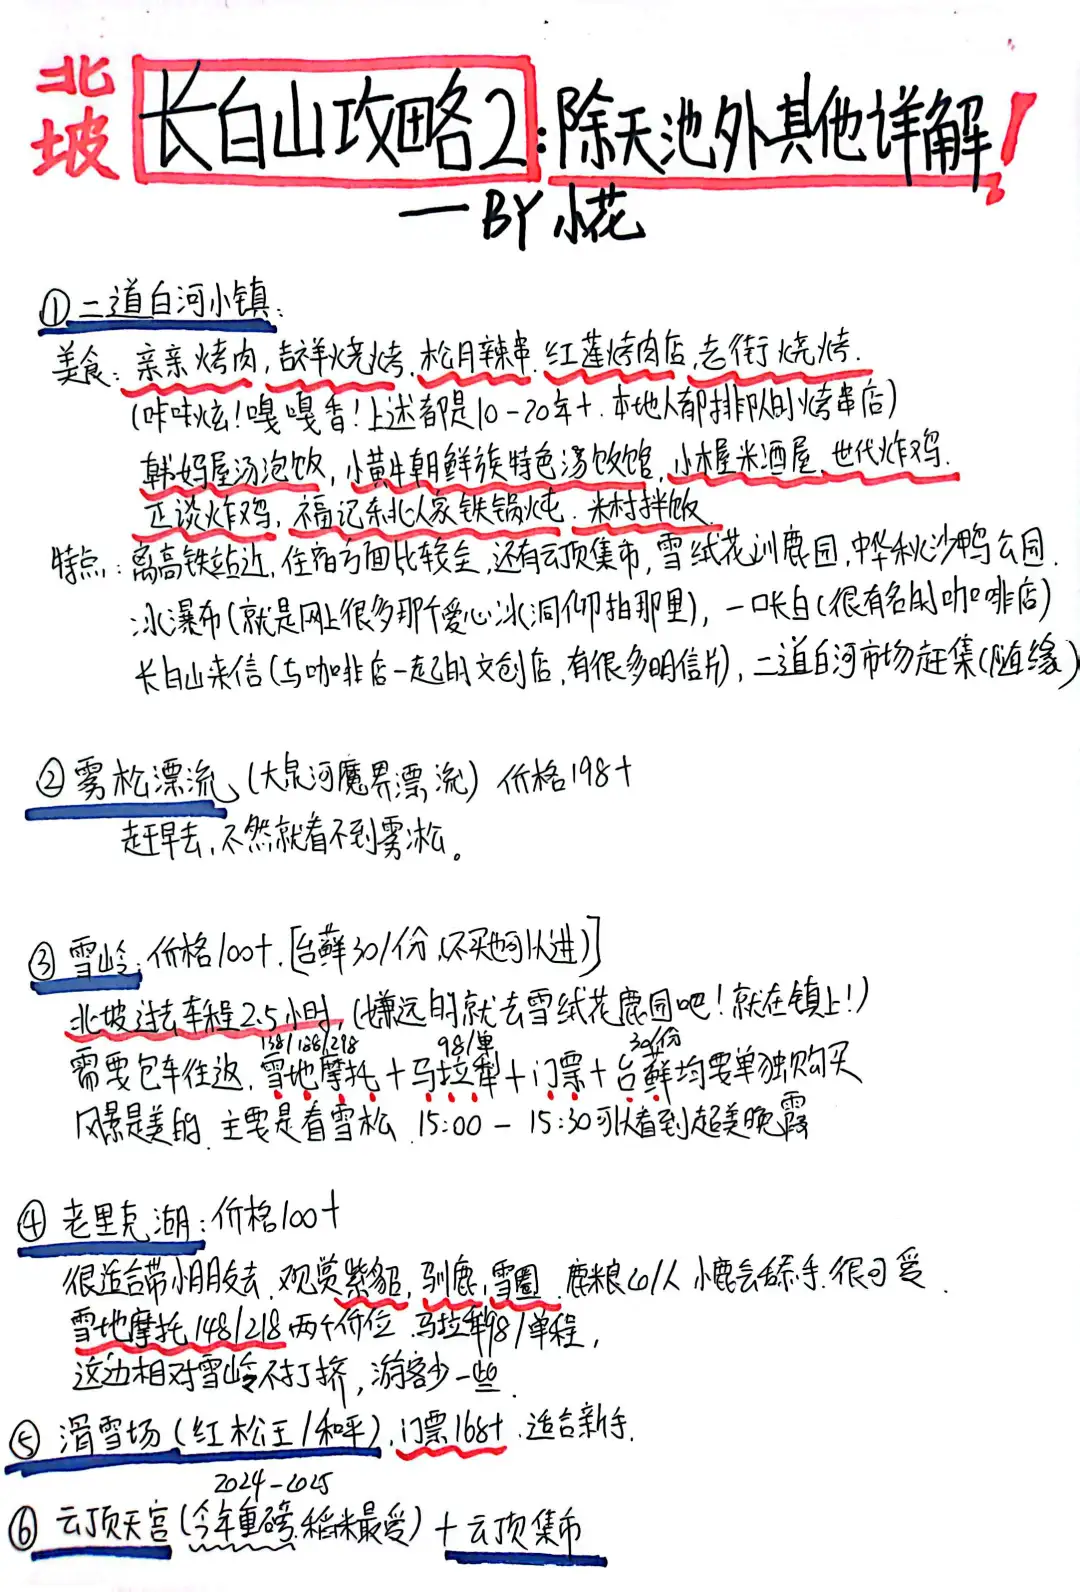 北坡 长白山攻略2:除天池外其他详解!
—BY 小花
①二道白河小镇:
美食:亲亲烤肉,吉祥烧烤.松月辣串.红莲烤肉店,老街烧烤.
(咔咔炫!嘎嘎香!上述都是10-20年+.本地人都排队的烤串店)
韩妈屋汤泡饭,小黄牛朝鲜族特色汤饭馆,小木屋米酒屋.世代炸鸡.
正谈炸鸡,福记东北人家铁锅炖.米村拌饭.
特点:离高铁站近,住宿方面比较全,还有云顶集市,雪绒花训鹿园,中华秋沙鸭公园.
冰瀑布(就是网上很多那个爱心冰洞仰拍那里),一口长白(很有名的咖啡店)
长白山来信(与咖啡店一起的文创店,有很多明信片),二道白河市场赶集(随缘)
②雾松漂流,(大泉河魔界漂流) 价格198+
赶早去,不然就看不到雾凇。
③雪岭:价格100+.[台藓30/份,(不买也可以进)]
北坡过去车程2.5小时,(嫌远的就去雪绒花鹿园吧!就在镇上!)
138/168/298 98/单 30/份
需要包车往返,雪地摩托+马拉犁+门票+台藓均要单独购买
风景是美的.主要是看雪松.15:00-15:30可以看到超美晚霞
④老里克湖:价格100+
很适合带小朋友去.观赏紫貂,驯鹿,雪圈.鹿粮20/人 小鹿会舔手.很可爱.
雪地摩托148/218两个价位.马拉犁98/单程,
这边相对雪岭不打挤,游客少一些.
⑤滑雪场(红松王/和平),门票168+.适合新手.
2024-2025
⑥云顶天宫(今年重磅.稻米最爱)+云顶集市